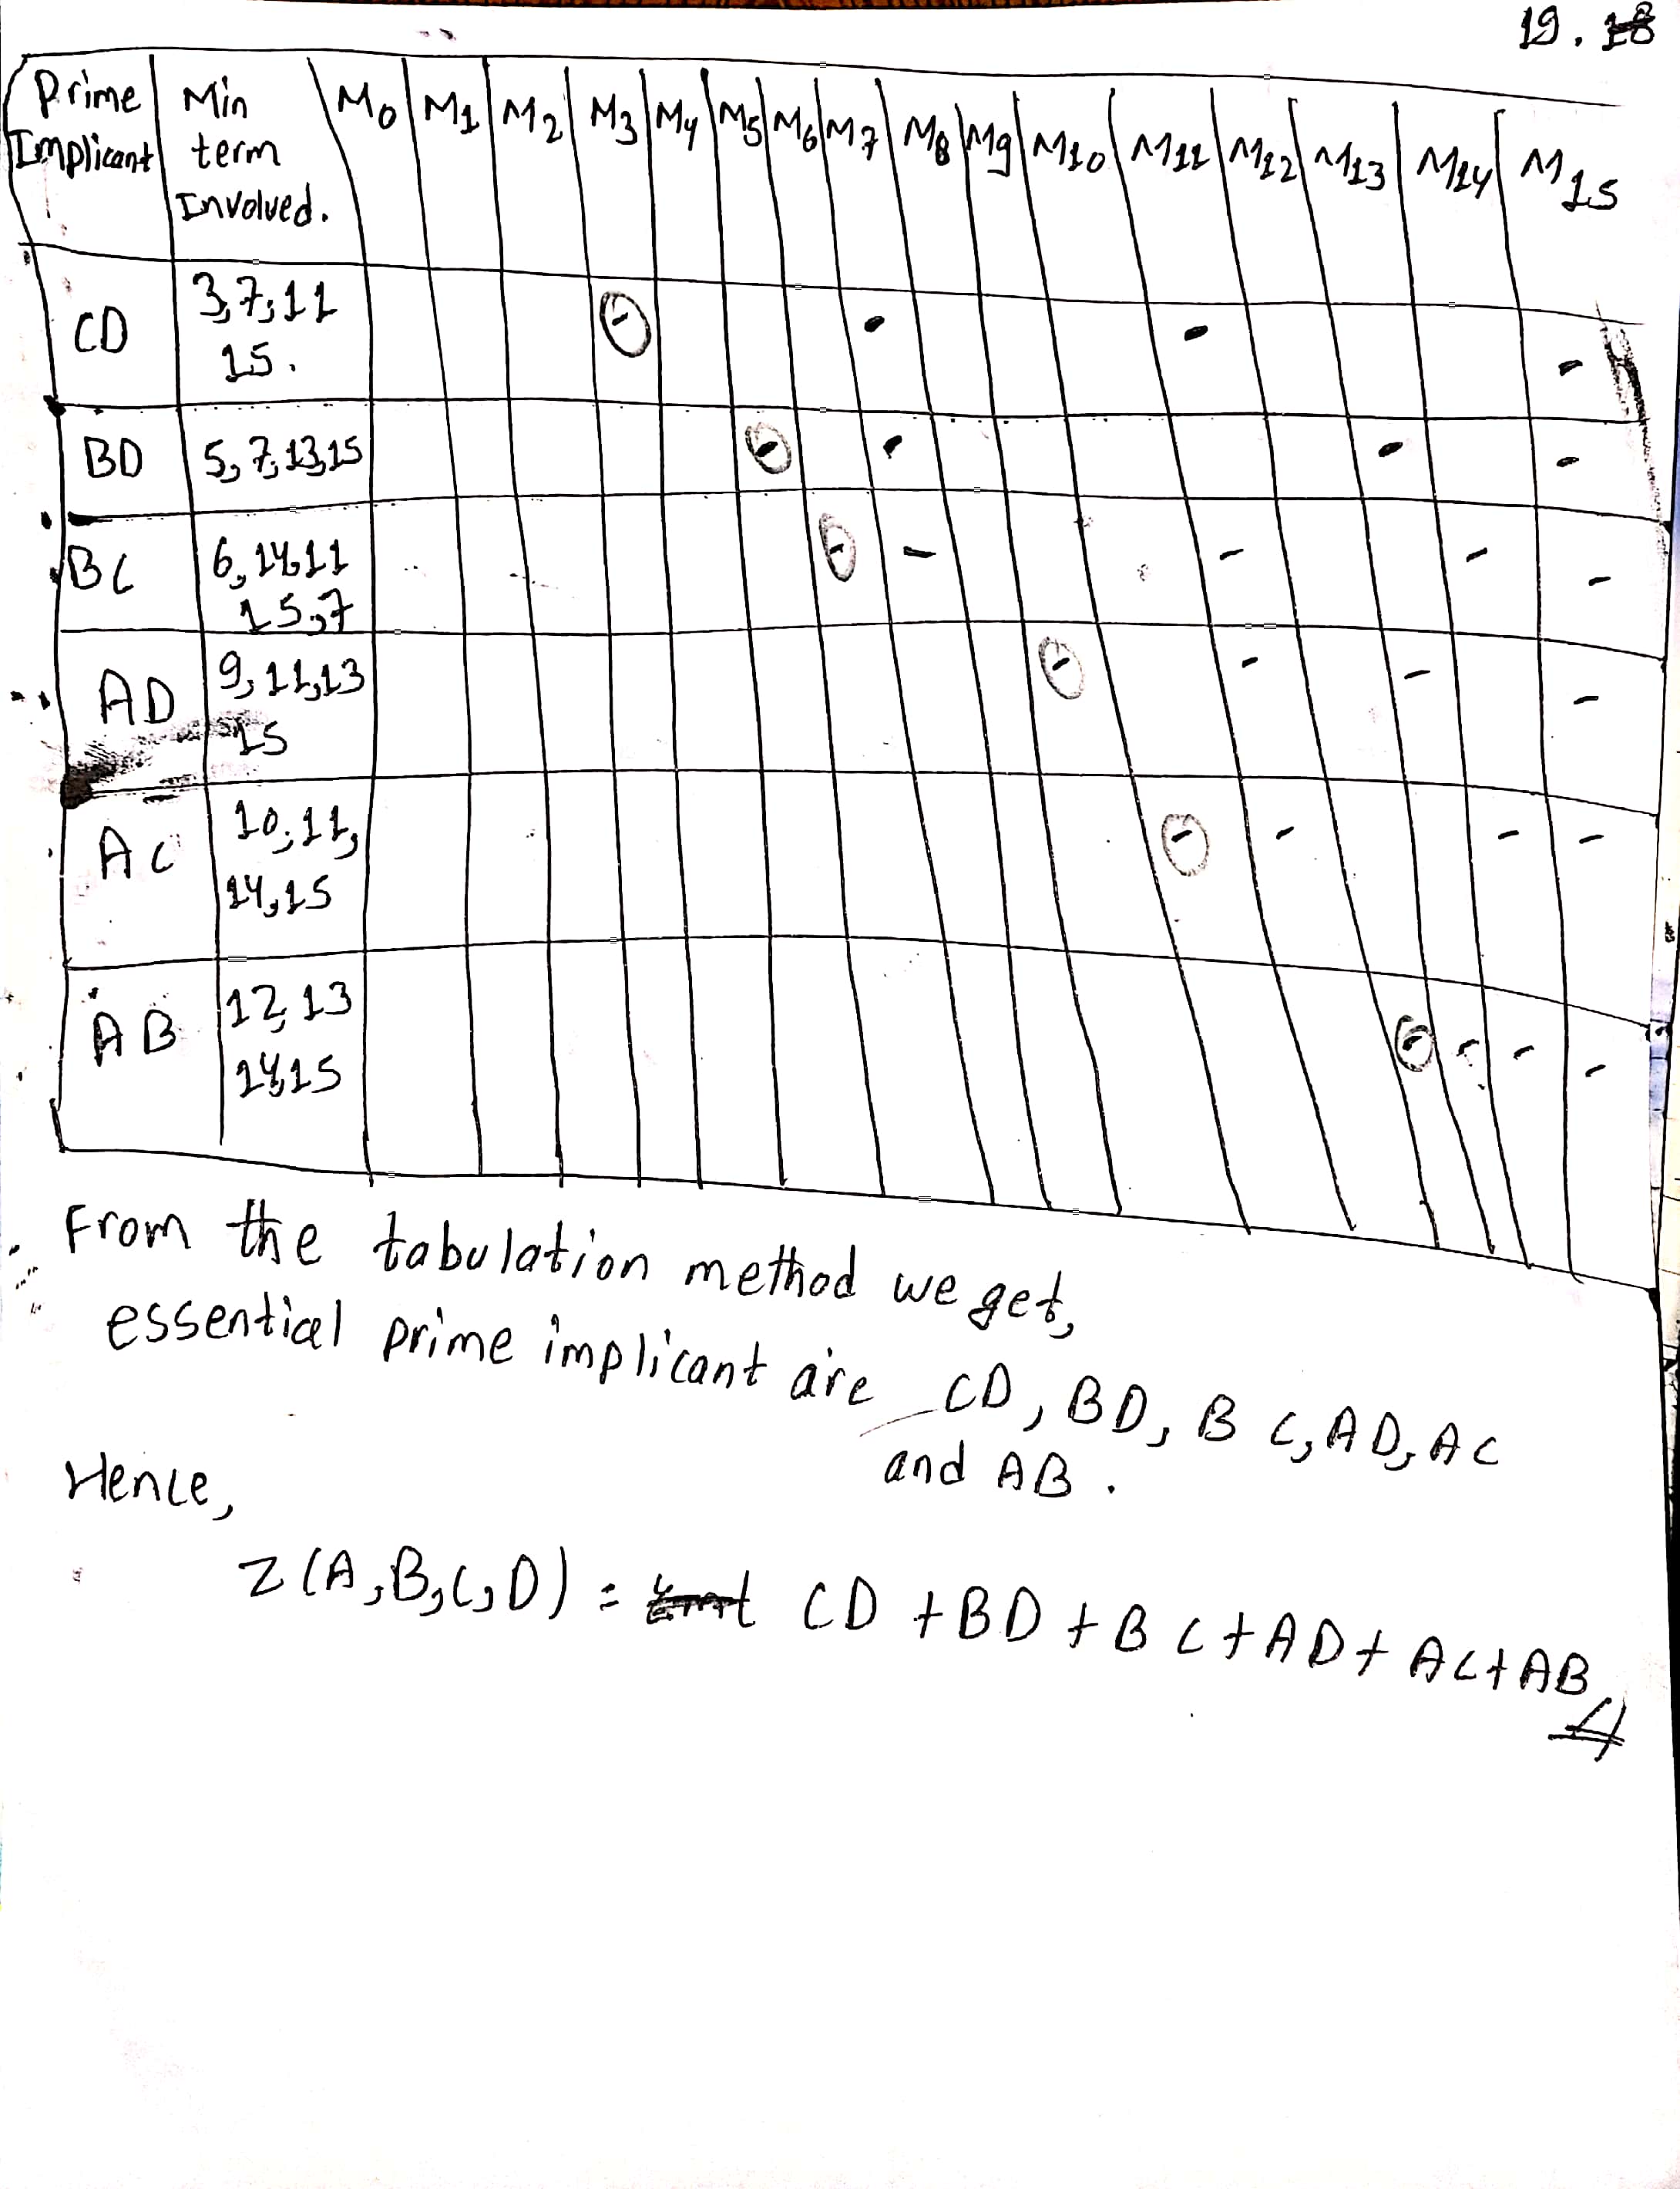 19.18
Prime Implicant | Min term Involved. | M0 | M1 | M2 | M3 | M4 | M5 | M6 | M7 | M8 | M9 | M10 | M11 | M12 | M13 | M14 | M15
CD | 3,7,11 15.
BD | 5,7,13,15
BC | 6,14,11 15,7
AD | 9,11,13 15
AC | 10,11, 14,15
AB | 12,13 14,15
From the tabulation method we get,
essential prime implicant are CD, BD, BC, AD, AC
and AB.
Hence,
Z(A,B,C,D) = CD + BD + BC + AD + AC + AB